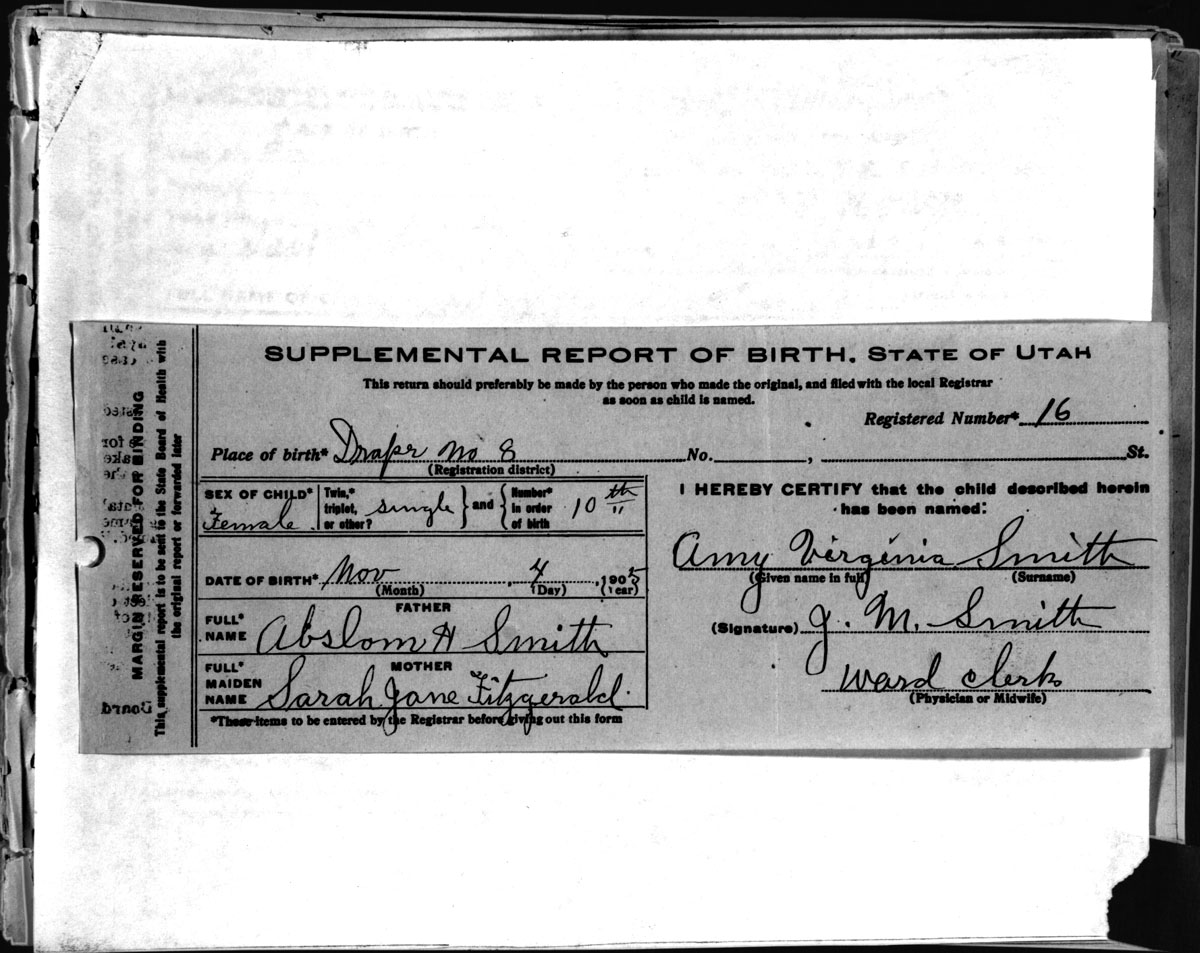 SUPPLEMENTAL REPORT OF BIRTH. STATE OF UTAH
This return should preferably be made by the person who made the original, and filed with the local Registrar
as soon as child is named.
Registered Number* 16
Place of birth* Draper No 8 No. , St.
(Registration district)
SEX OF CHILD*
Female
Twin,*
triplet,
or other?
single
and
Number*
in order
of birth
10th
"
DATE OF BIRTH* Nov , 4 , 1905
(Month) (Day) (Year)
FATHER
FULL*
NAME
Abslom H Smith
MOTHER
FULL*
MAIDEN
NAME
Sarah Jane Fitzgerald.
*These items to be entered by the Registrar before giving out this form
I HEREBY CERTIFY that the child described herein
has been named:
Amy Virginia Smith
(Given name in full) (Surname)
(Signature) J. M. Smith
Ward Clerk
(Physician or Midwife)
MARGIN RESERVED FOR BINDING
This supplemental report is to be sent to the State Board of Health with
the original report or forwarded later
Board